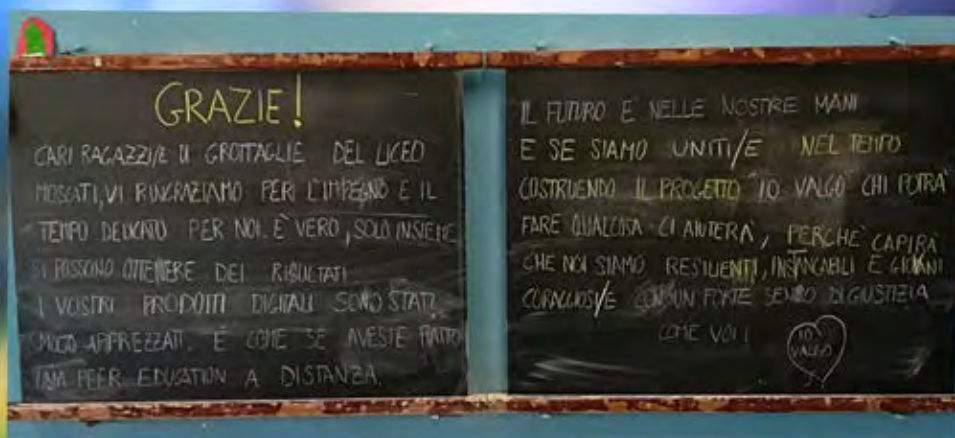 GRAZIE!
CARI RAGAZZI/E DI GROTTAGLIE DEL LICEO
MOSCATI, VI RINGRAZIAMO PER L'IMPEGNO E IL
TEMPO DEDICATO PER NOI. È VERO, SOLO INSIEME
SI POSSONO OTTENERE DEI RISULTATI
I VOSTRI PRODOTTI DIGITALI SONO STATI
APPREZZATI. È COME SE AVESTE FATTO
UNA PEER EDUCATION A DISTANZA.
IL FUTURO È NELLE NOSTRE MANI
E SE SIAMO UNITI/E NEL TEMPO
COSTRUENDO IL PROGETTO "IO VALGO" CHI POTRÀ
FARE QUALCOSA CI AIUTERÀ, PERCHÈ CAPIRÀ
CHE NOI SIAMO RESILIENTI, INSTANCABILI E GIOVANI
CORAGGIOSI/E CON UN FORTE SENSO DI GIUSTIZIA
COME VOI!
IO
VALGO